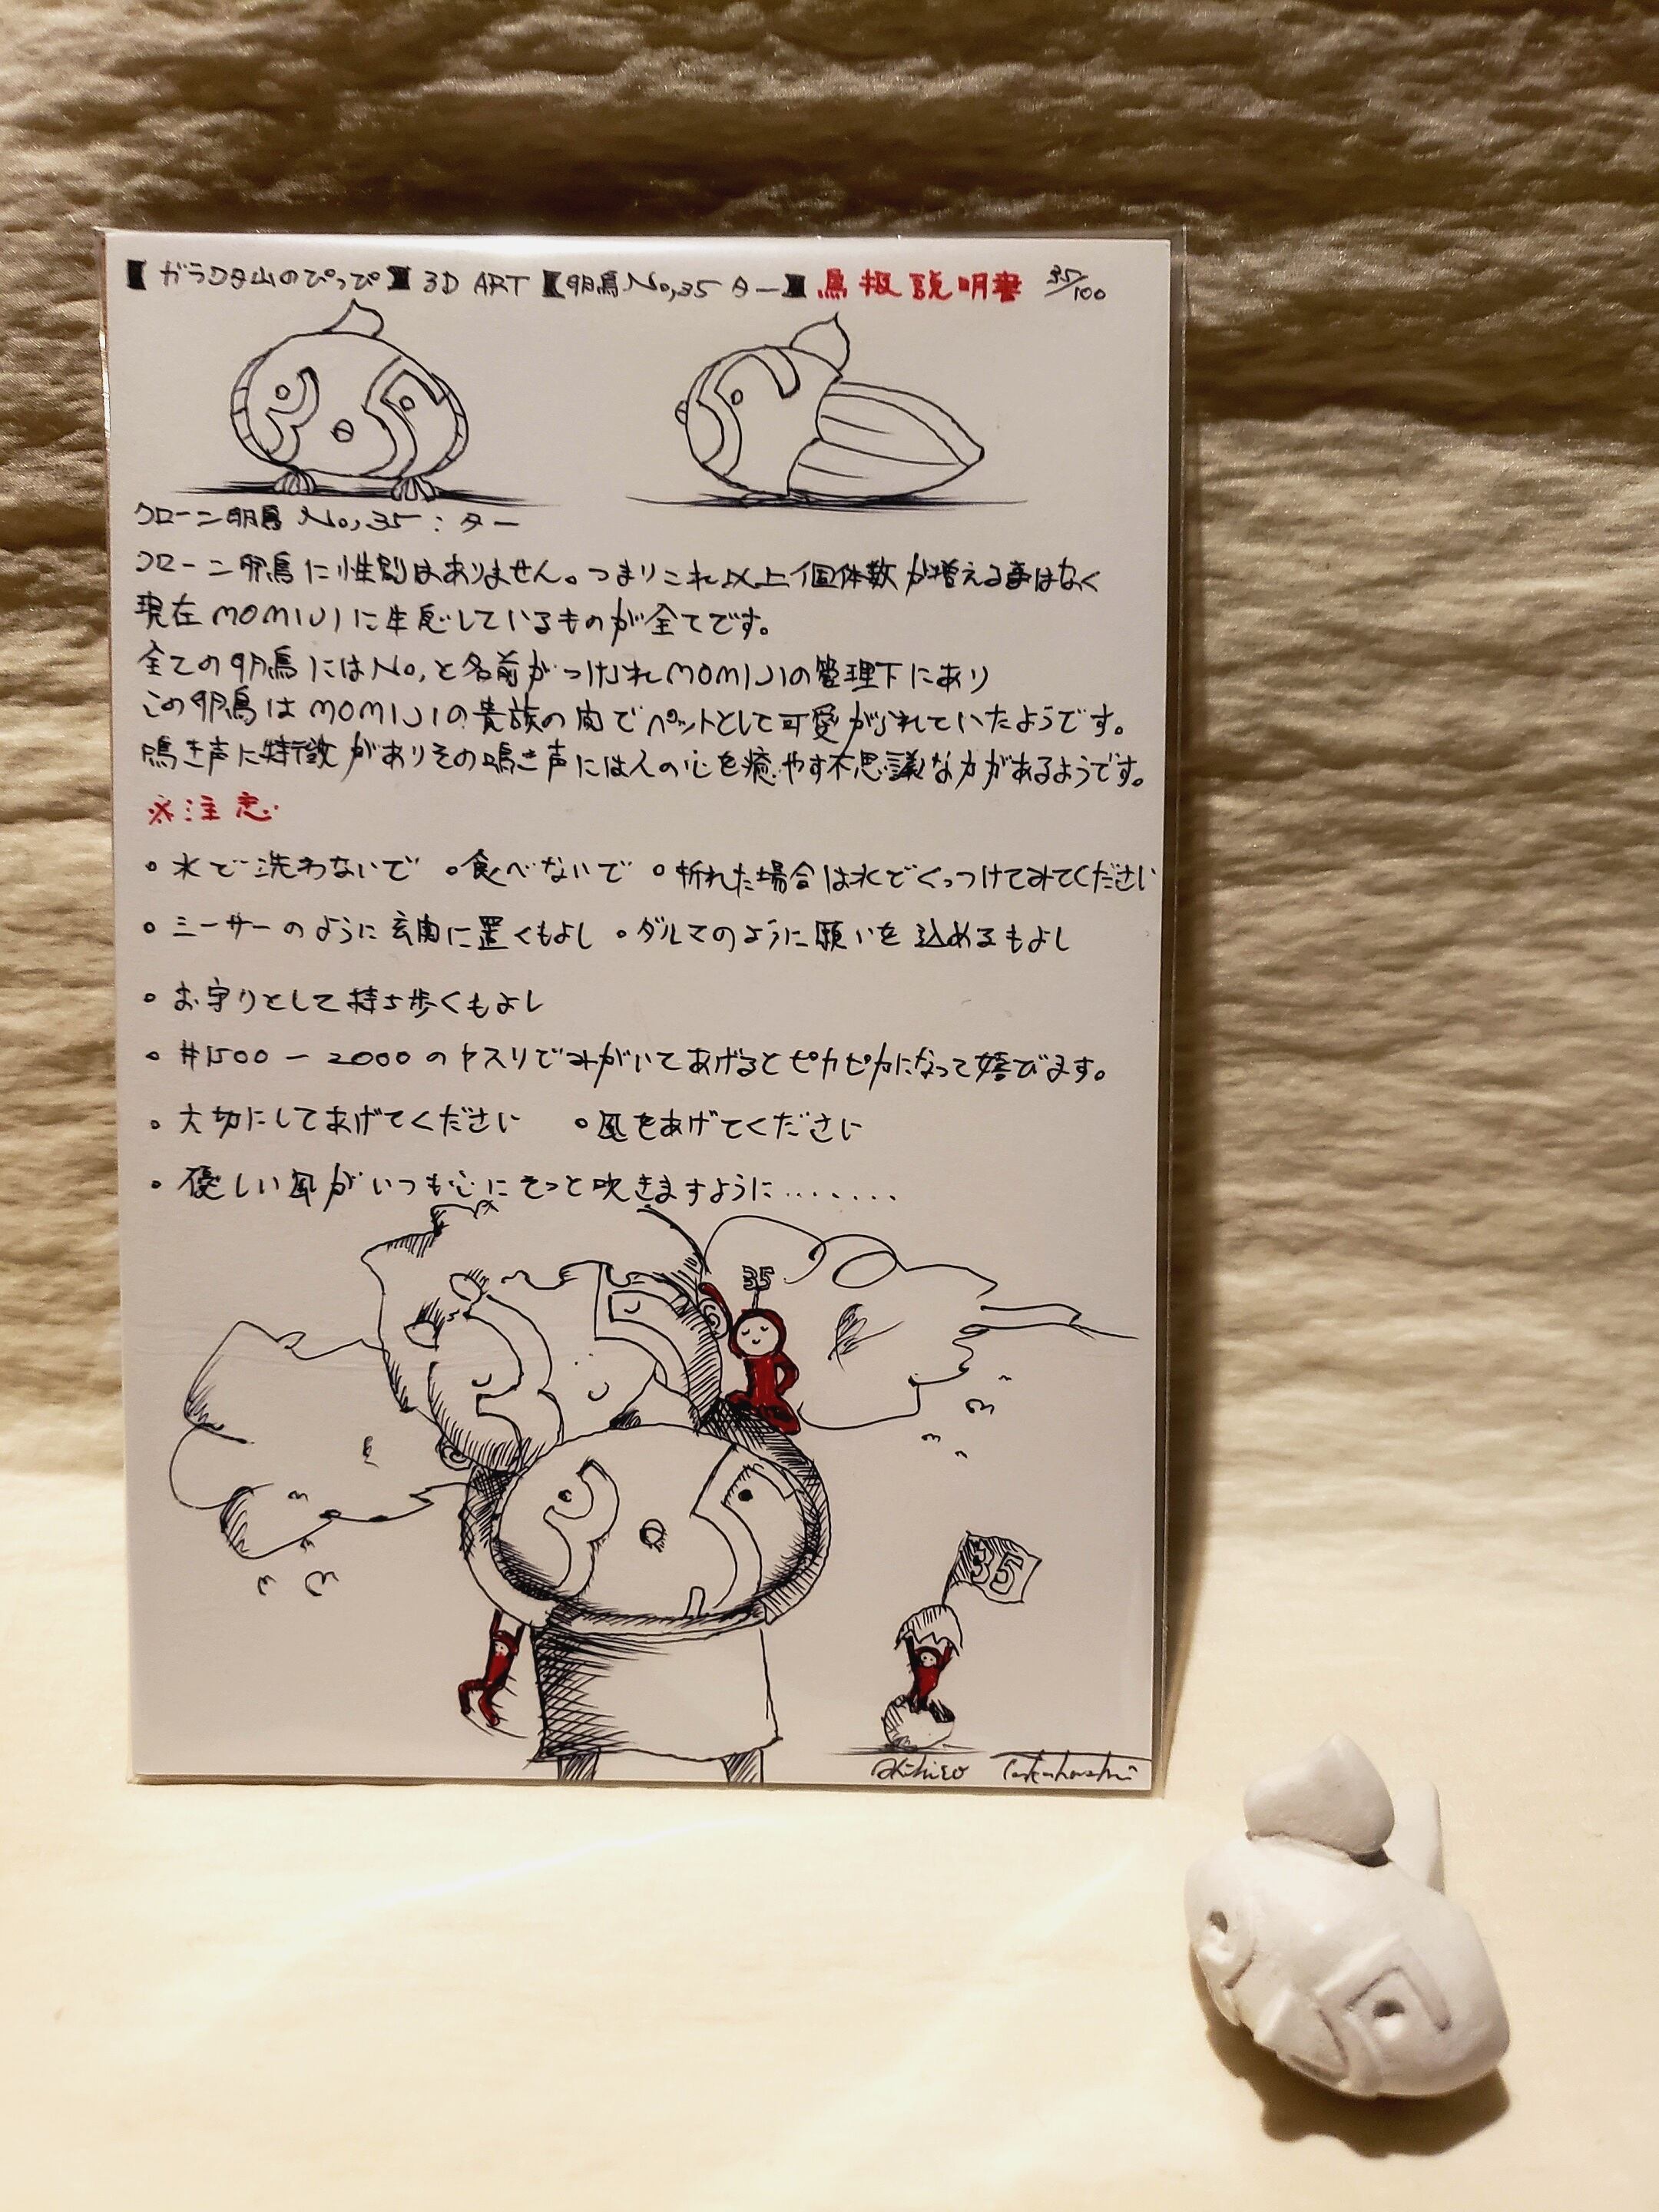 【ガラクタ山のぴっぴ】3D ART【卵鳥No,35 ター】鳥扱説明書 35/100
クローン卵鳥 No,35：ター
クローン卵鳥に性別はありません。つまりこれ以上個体数が増える事はなく
現在MOMIJIに生息しているものが全てです。
全ての卵鳥にはNo,と名前がつけられMOMIJIの管理下にあり
この卵鳥はMOMIJIの貴族の間でペットとして可愛がられていたようです。
鳴き声に特徴がありその鳴き声には人の心を癒やす不思議な力があるようです。
※注意
・水で洗わないで ・食べないで ・折れた場合は水でくっつけてみてください
・ミーサーのように玄関に置くもよし ・ダルマのように願いを込めるもよし
・お守りとして持ち歩くもよし
・#1500ー2000のヤスリでみがいてあげるとピカピカになって喜びます。
・大切にしてあげてください ・風をあげてください
・優しい風がいつも心にそっと吹きますように.......
35
35
Akihiro Takahashi